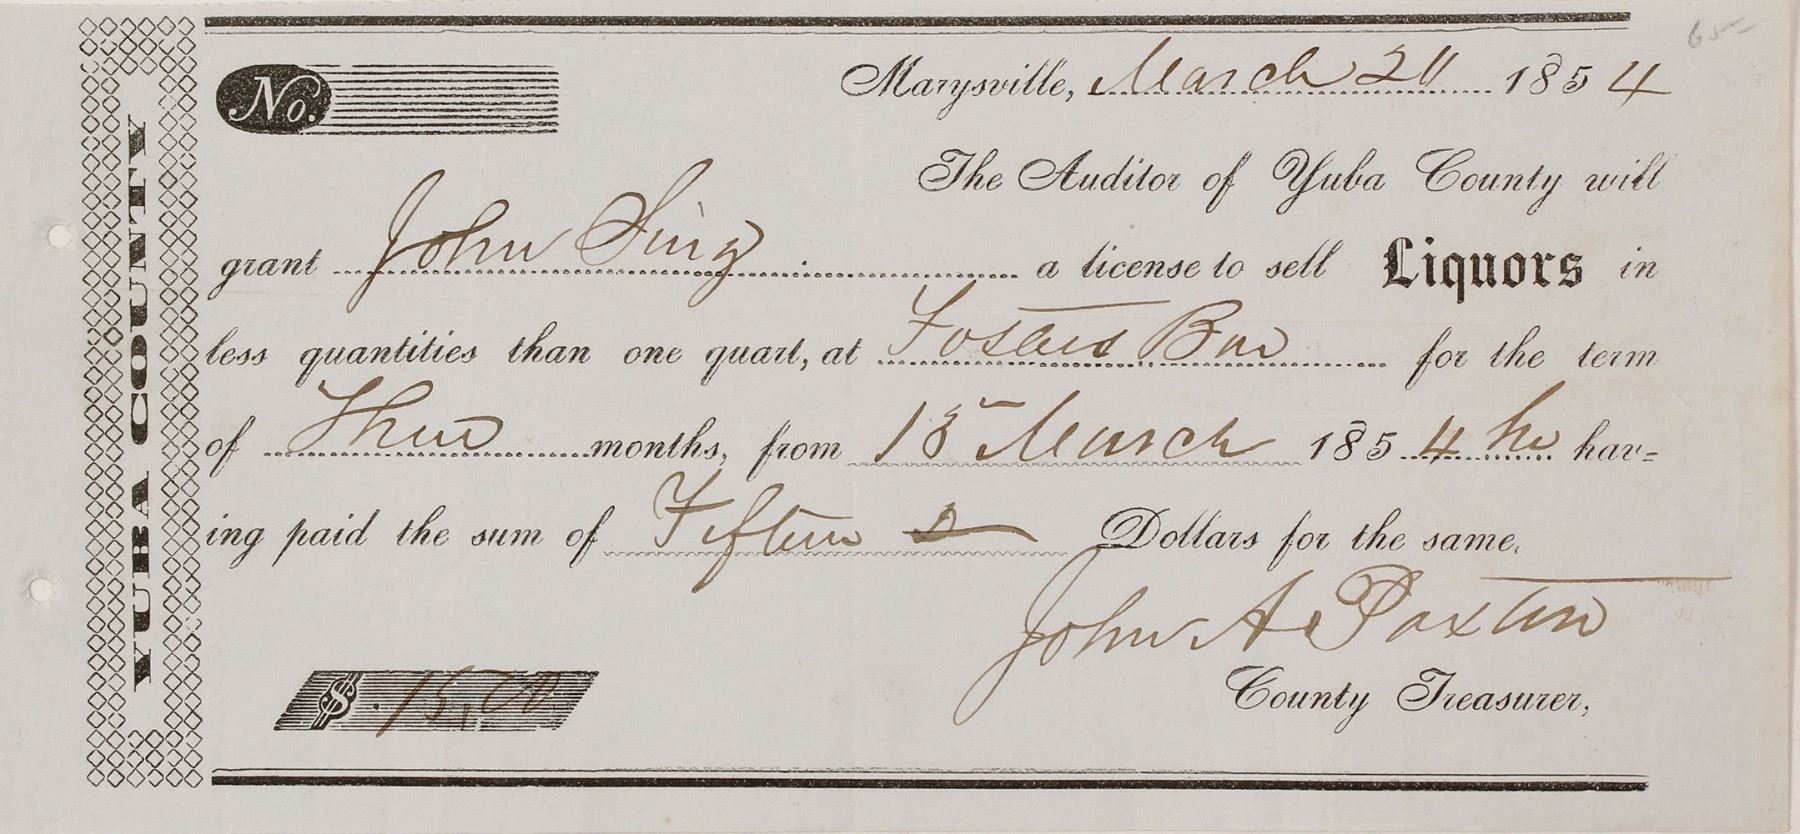 65-
No.
Marysville, March 20 1854
The Auditor of Yuba County will
grant John Sing a license to sell Liquors in
less quantities than one quart, at Fosters Bar for the term
of Three months, from 15 March 1854 he hav=
ing paid the sum of Fifteen Dollars for the same.
John A Paxton
County Treasurer,
$ 15,00
YUBA COUNTY